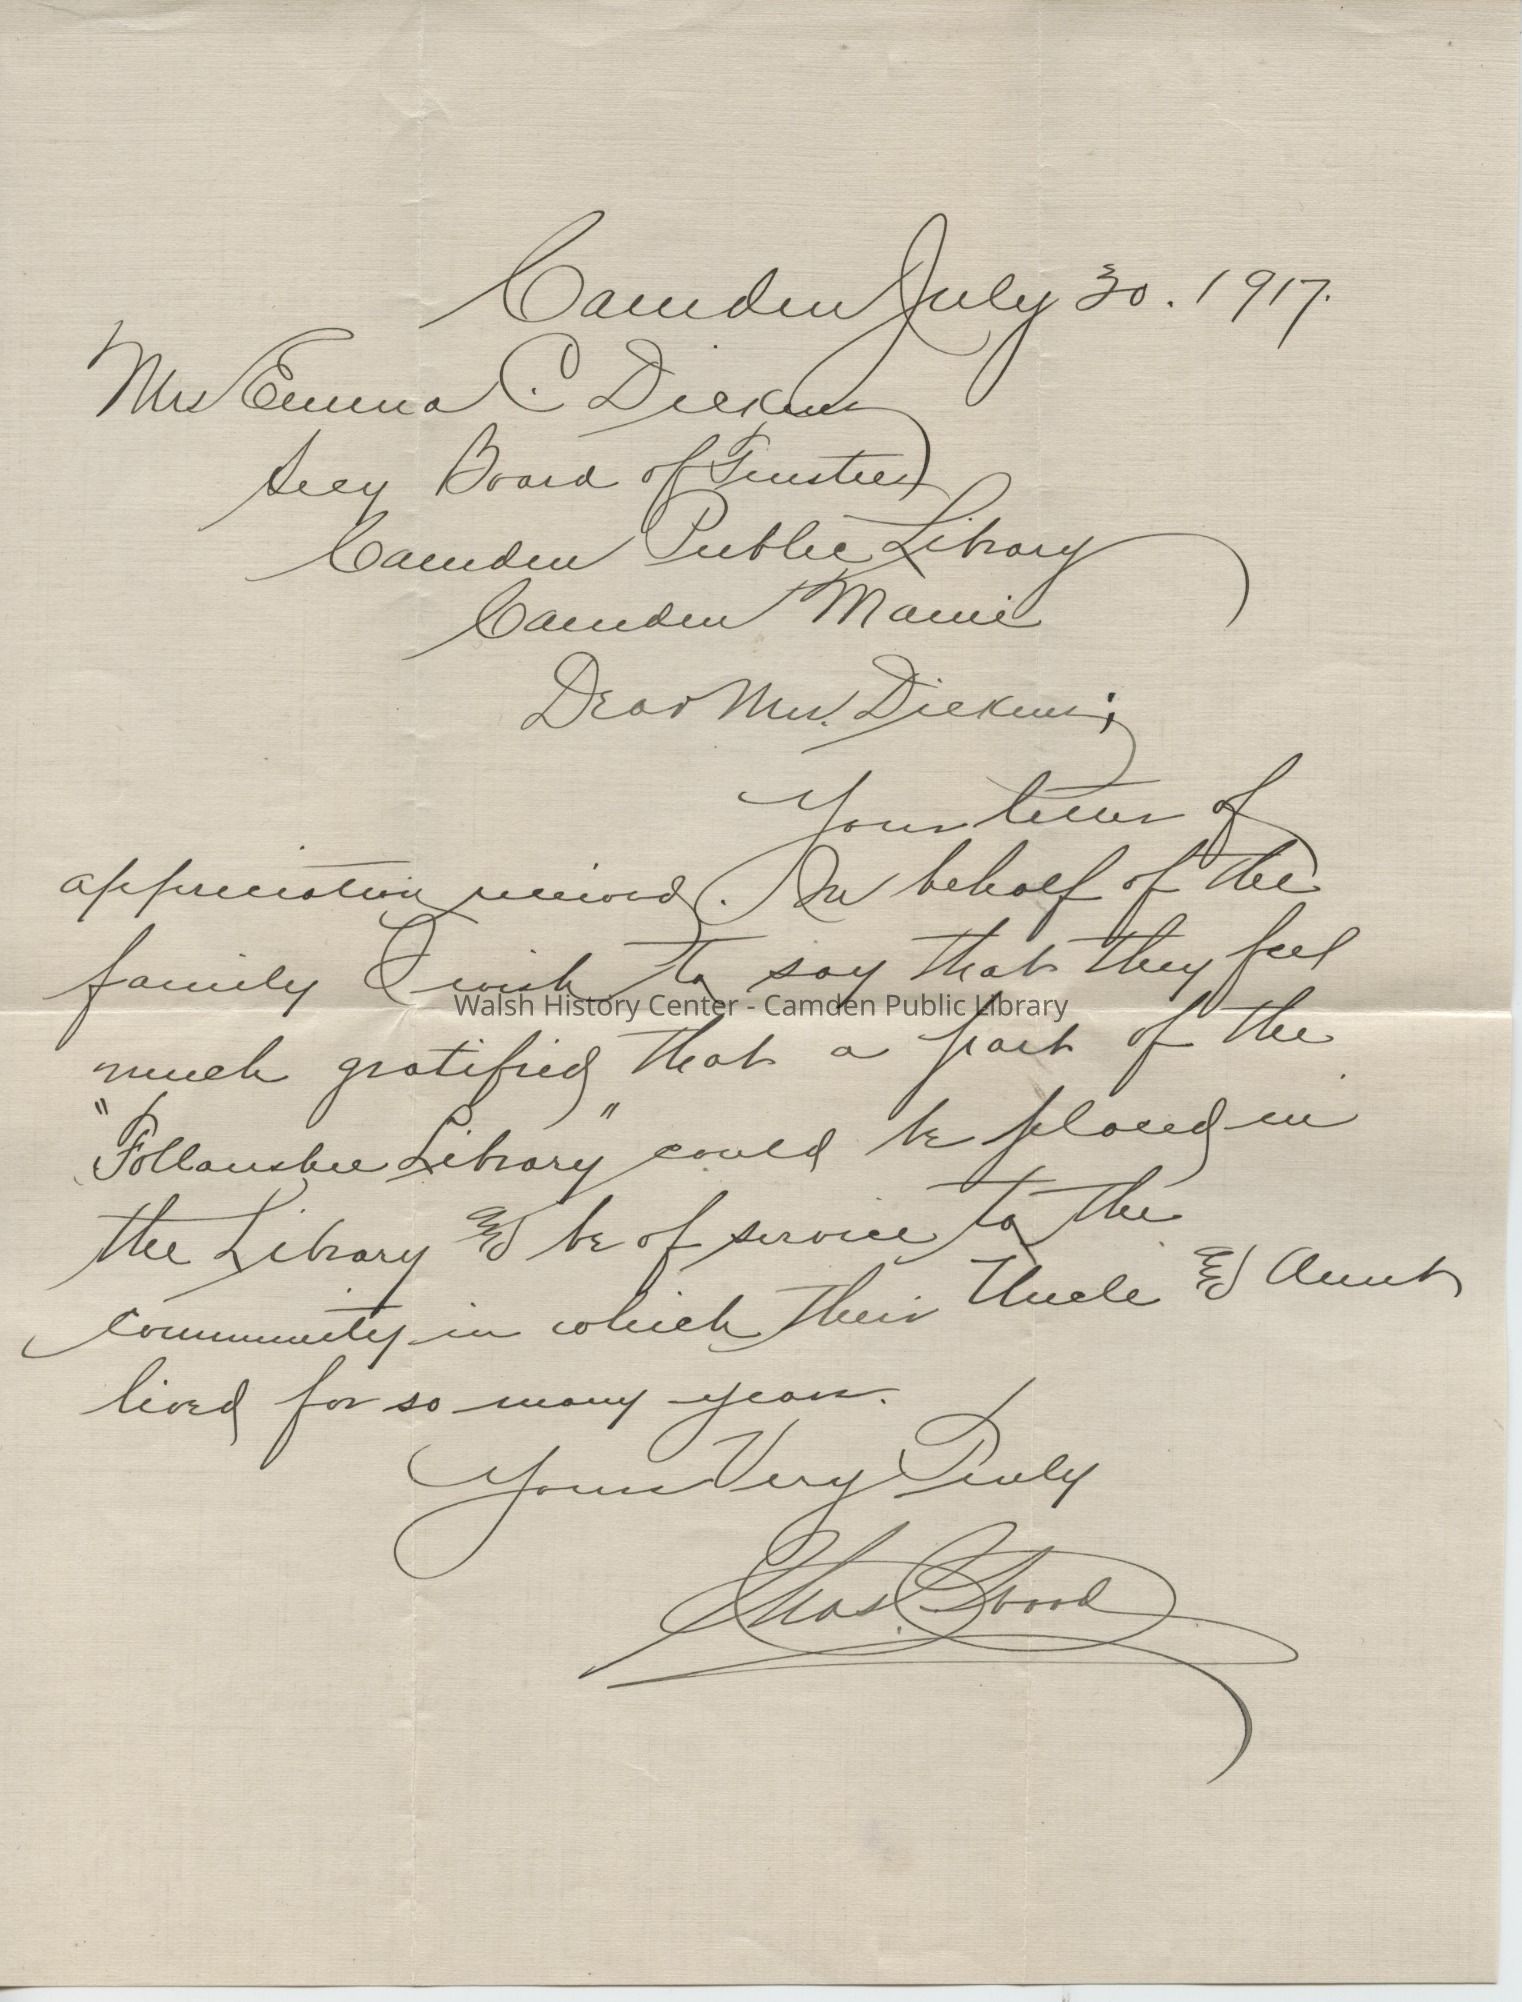 Camden July 30. 1917.
Mrs Emma C. Dickens
Secy Board of Trustees
Camden Public Library
Camden Maine
Dear Mrs. Dickens;
Your letter of
appreciation received. In behalf of the
family I wish to say that they feel
Walsh History Center - Camden Public Library
much gratified that a part of the
"Follansbee Library" could be placed in
the Library and be of service to the
community in which their Uncle and Aunt
lived for so many years.
Yours Very Truly
Chas. Wood